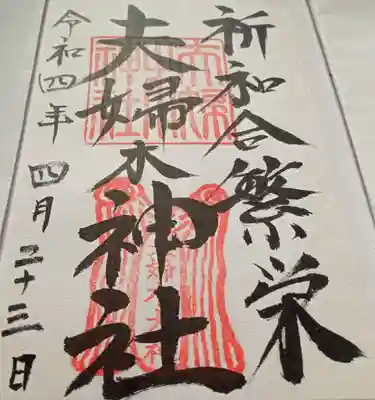 祈和合繁栄
夫婦木神社
令和四年 四月二十三日